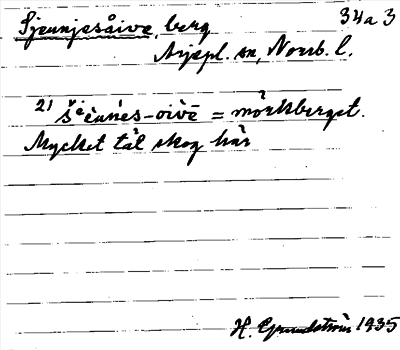 Sjeunjesåive, berg 34a3
Arjepl. sn, Norrb. l.
21 šⁱeu̯ńɛs-oi̯vē = mörkberget.
Mycket tät skog här
H. Grundström 1935